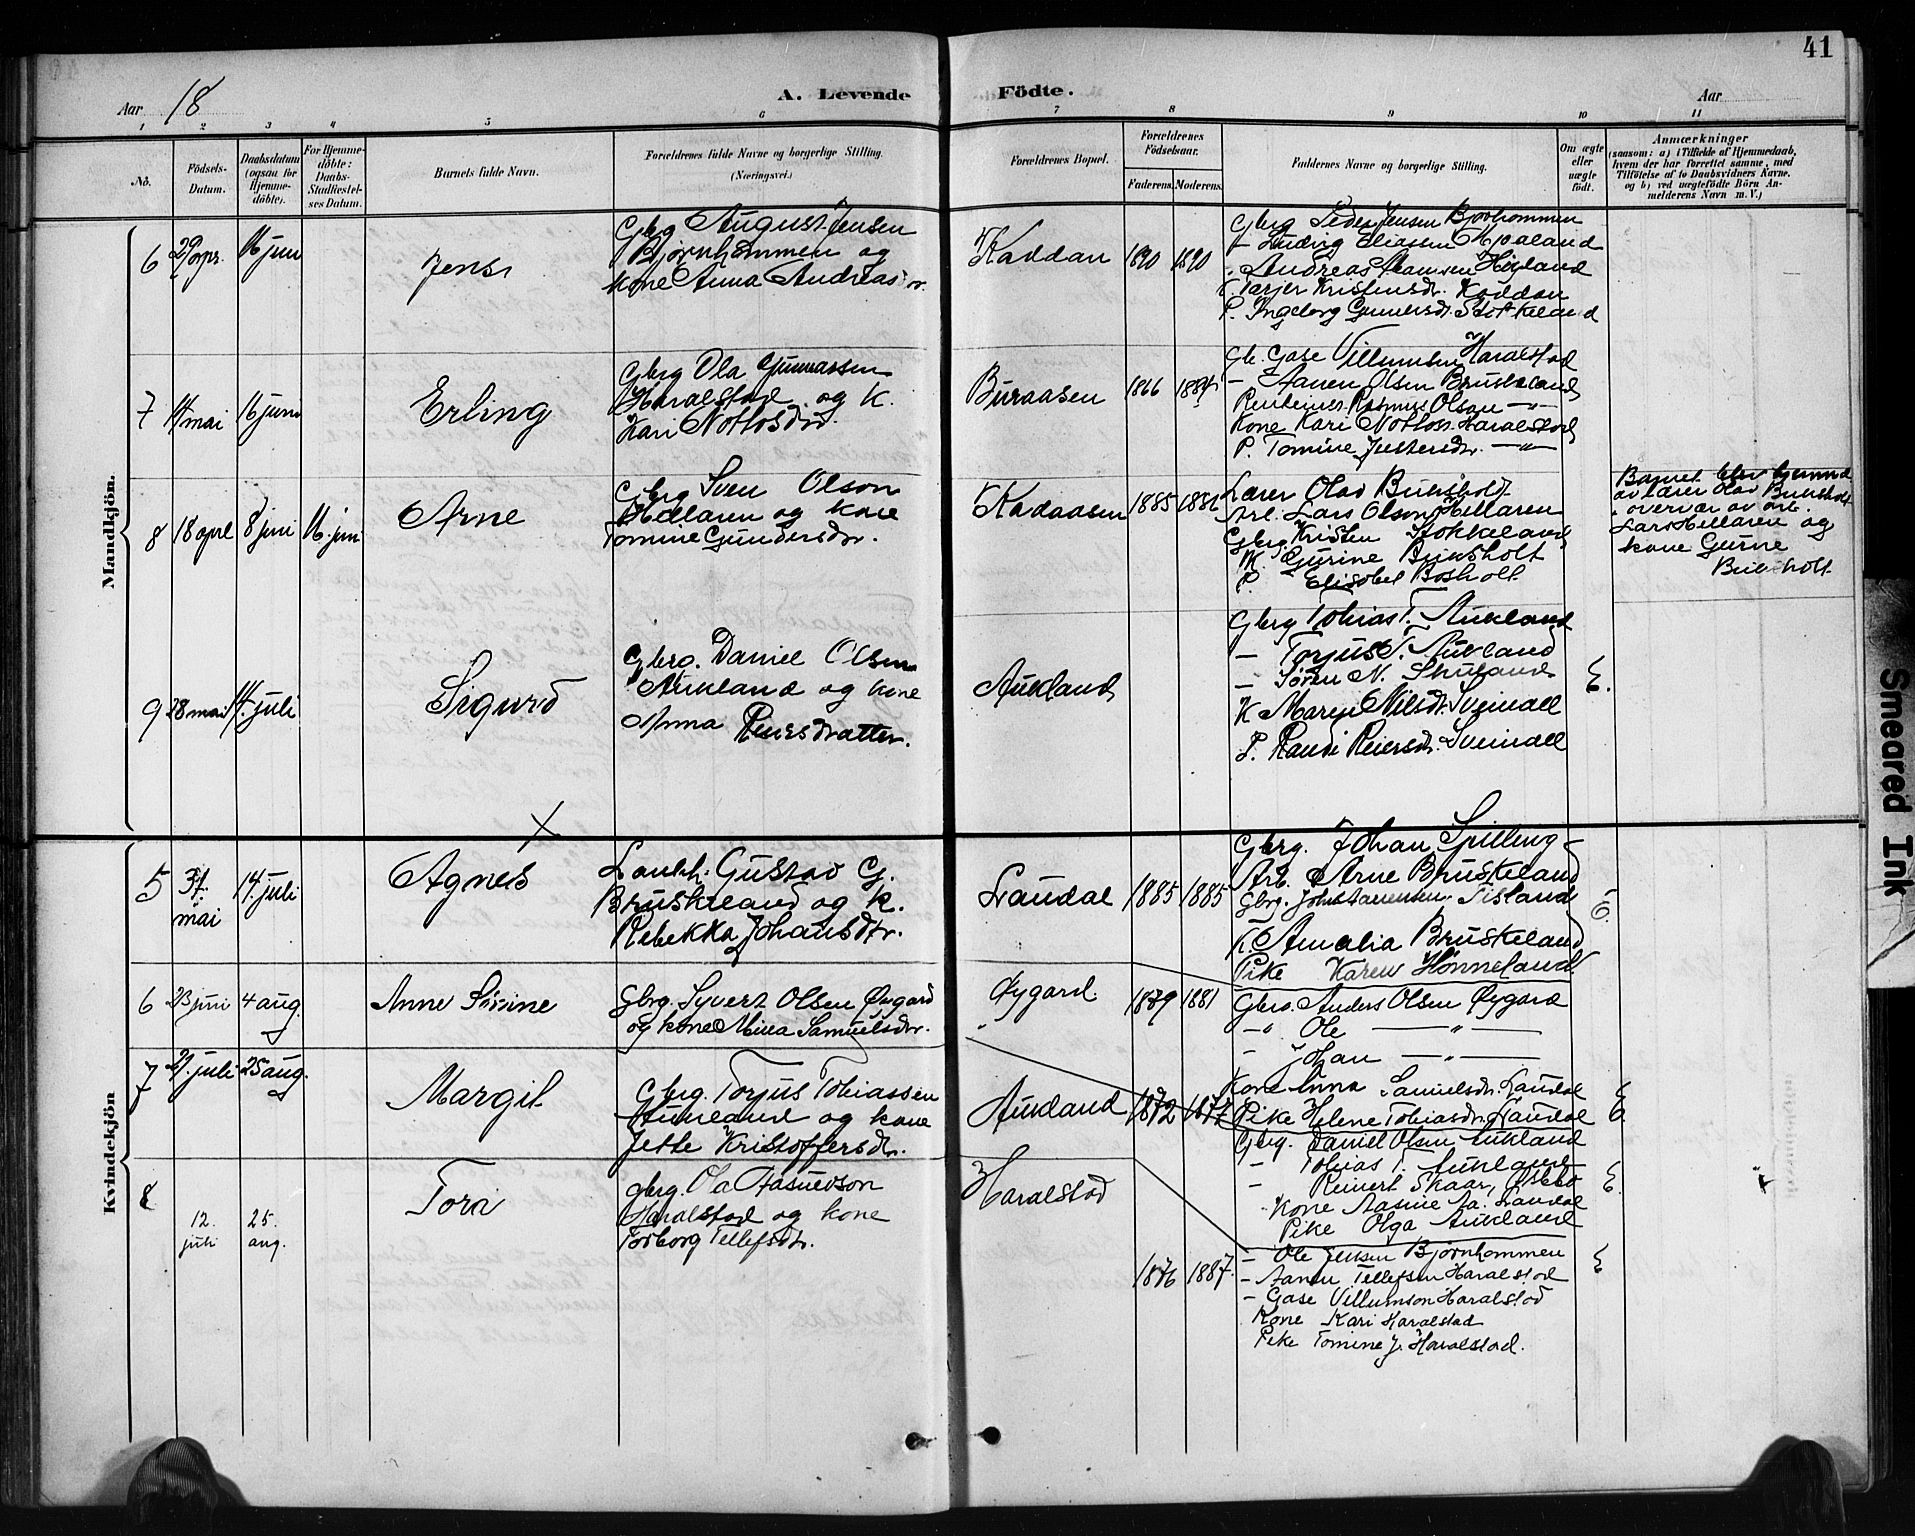 41
Aar 18
A. Levende
Födte.
Aar
1 2 3 4 5 6 7 8 9 10 11
No.
Födsels-Datum.
Daabsdatum (ogsaa for Hjemme-döbte).
For Hjemme-döbte: Daabs-Stadfæstel-ses Datum.
Barnets fulde Navn.
Forældrenes fulde Navne og borgerlige Stilling.
(Næringsvei.)
Forældrenes Bopæl.
Forældrenes Födselsaar.
Faderens. Moderens.
Faddernes Navne og borgerlige Stilling.
Om ægte eller uægte födt.
Anmærkninger
(saasom: a) i Tilfælde af Hjemmedaab, hvem der har forrettet samme, med Tilföielse af to Daabsvidners Navne, og b) ved uægtefödte Börn Anmelderens Navn m. V.)
Mandkjön.
6 29 apr. 16 juni Jens
Gbrg August Jensen
Bjørnhommen og
kone Anna Andreasdr.
1890 1890
Gbrg Peder Jensen Bjørhommen
- Ludvig Eliassen Mjaaland
- Andreas Høyland
Kristensdr. Koddan
P. Ingeborg Gundersdr. Stokkeland
7 14 mai 16 juni Erling
Gbrg Ola Gunnarssen
Haralstad og K.
Kari Nottosdr.
Buraasen 1866 1884
Gb. Gase Villumsen Haralstad
- Aanen Olsen Bruskeland
Rasmus Olson -"-
Kone Kari Haralstad
P. Tomine Justersdr. -"-
8 18 apr. 8 juni 16. juni Arne
Gbrg Sven Olson
Hellaren og kone
Tomine Gundersdr.
1885
Lærer Olav
Arb. Lars Olson Hellaren
Gbrg Kristen Stokkeland
K. Gurine
P. Elisabet Bosholt
Barnet blev hjemmed.
av lærer Olav
i overvær av arb.
Lars Hellaren og
kone Gurine
9 28 mai 14. juli Sigurd
Gbrg. Daniel Olsen
Aukland og kone
Anna Reiersdratter.
Aukland
Gbrg Tobias T. Aukland
- Torjus T. Aukland
- Søren N.
K Nilsdr. Sveindall
P. Randi Reiersdr. Sveindall
E.
Kvindekjön
5 31. mai 14. juli Agnes
Landh. Gustav G.
Bruskeland og k.
Rebekka Johansdtr.
Laudal 1885 1885
Gbrg. Johan Spilling
Arb. Arne Bruskeland
Gbrg. Tisland
K. Amalia Bruskeland
Pike Karen Hønneland
E.
6 23 juni 4 aug. Anne Sørine
Gbrg. Syvert Olsen Øygard
og kone Mina Samuelsdr.
Øygard 1879 1881
Gbrg. Anders Olsen Øygard
-"- Ole -"-
- Johan -"-
Kone Anna Samuelsdr. Laudal
Pike Helene Tobiasdr. Laudal
7 21. juli 25 aug. Margit
Gbrg. Torjus Tobiassen
Aukland og kone
Jette Kristoffersdr.
Aukland 1872 1877
E.
Gbrg. Daniel Olsen Aukland
- Tobias T. Aukland
- Reinert Skaar, Øslebø
Kone Aasine Aa. Laudal
Pike Olga Aukland
E.
8 12. juli 25. aug. Tora
Gbrg. Ola
Haralstad og kone
Torborg Tellefsdtr.
Haralstad
1876 1887.
- Ole Jensen Bjørnhommen
- Aanen Tellefsen Haralstad
- Gase Villumson Haralstad
Kone Kari Haralstad
Pike Tomine J. Haralstad.
E
Smeared Ink